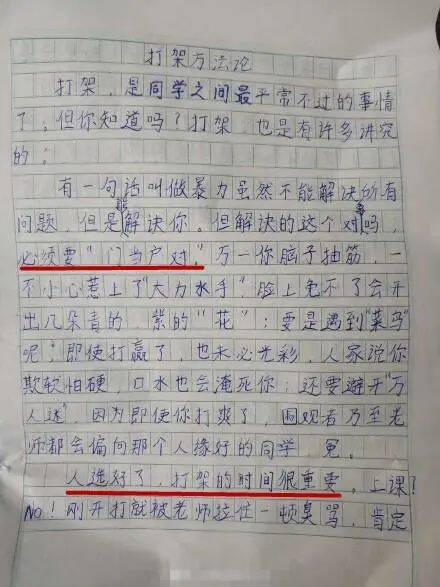 打架方法论
打架，是同学之间最平常不过的事情
了，但你知道吗？打架，也是有许多讲究
的：
有一句话叫做暴力虽然不能解决所有
问题，但是能解决你。但解决的这个对象吗，
必须要“门当户对”万一你脑子抽筋，一
不小心惹上了“大力水手”脸上免不了会开
出几朵青的，紫的“花”；要是遇到“菜鸟”
呢，即使打赢了，也未必光彩，人家说你
欺软怕硬，口水也会淹死你；还要避开“万
人迷”，因为即使你打爽了，围观者乃至老
师都会偏向那个人缘好的同学，冤。
人选好了，打架的时间很重要。上课？
No！刚开打就被老师拉住一顿臭骂，肯定